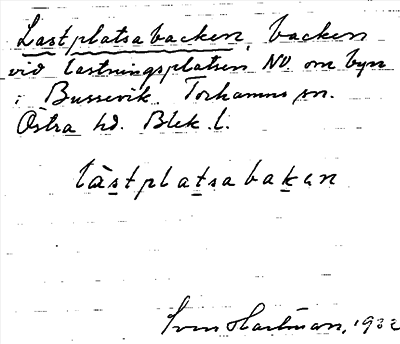 Lastplatsabacken, backen
vid lastningsplatsen NV om byn
i Bussevik Torhamns sn.
Östra hd. Blek. l.
làstplatsabakən
Sven Hartman, 1932